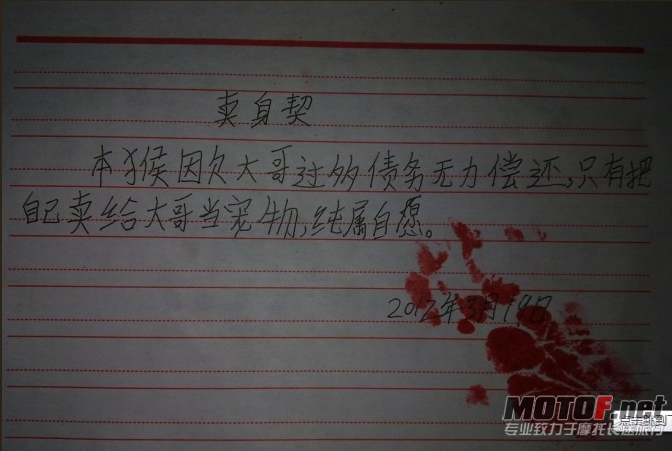 卖身契
本猴因欠大哥过多债务无力偿还,只有把
自己卖给大哥当宠物,纯属自愿。
2012年3月19日
MOTOF.net
专业致力于摩托长途旅行